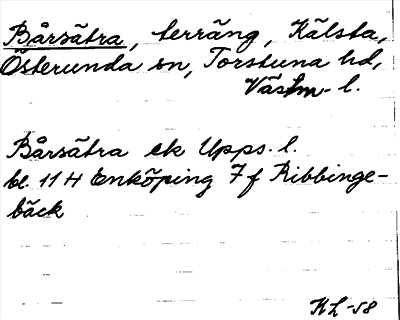 Bårsätra, terräng, Kälsta,
Österunda sn, Torstuna hd,
Västm. l.
Bårsätra ek Upps. l.
bl. 11 H Enköping 7 f Ribbinge-
bäck
KL-58